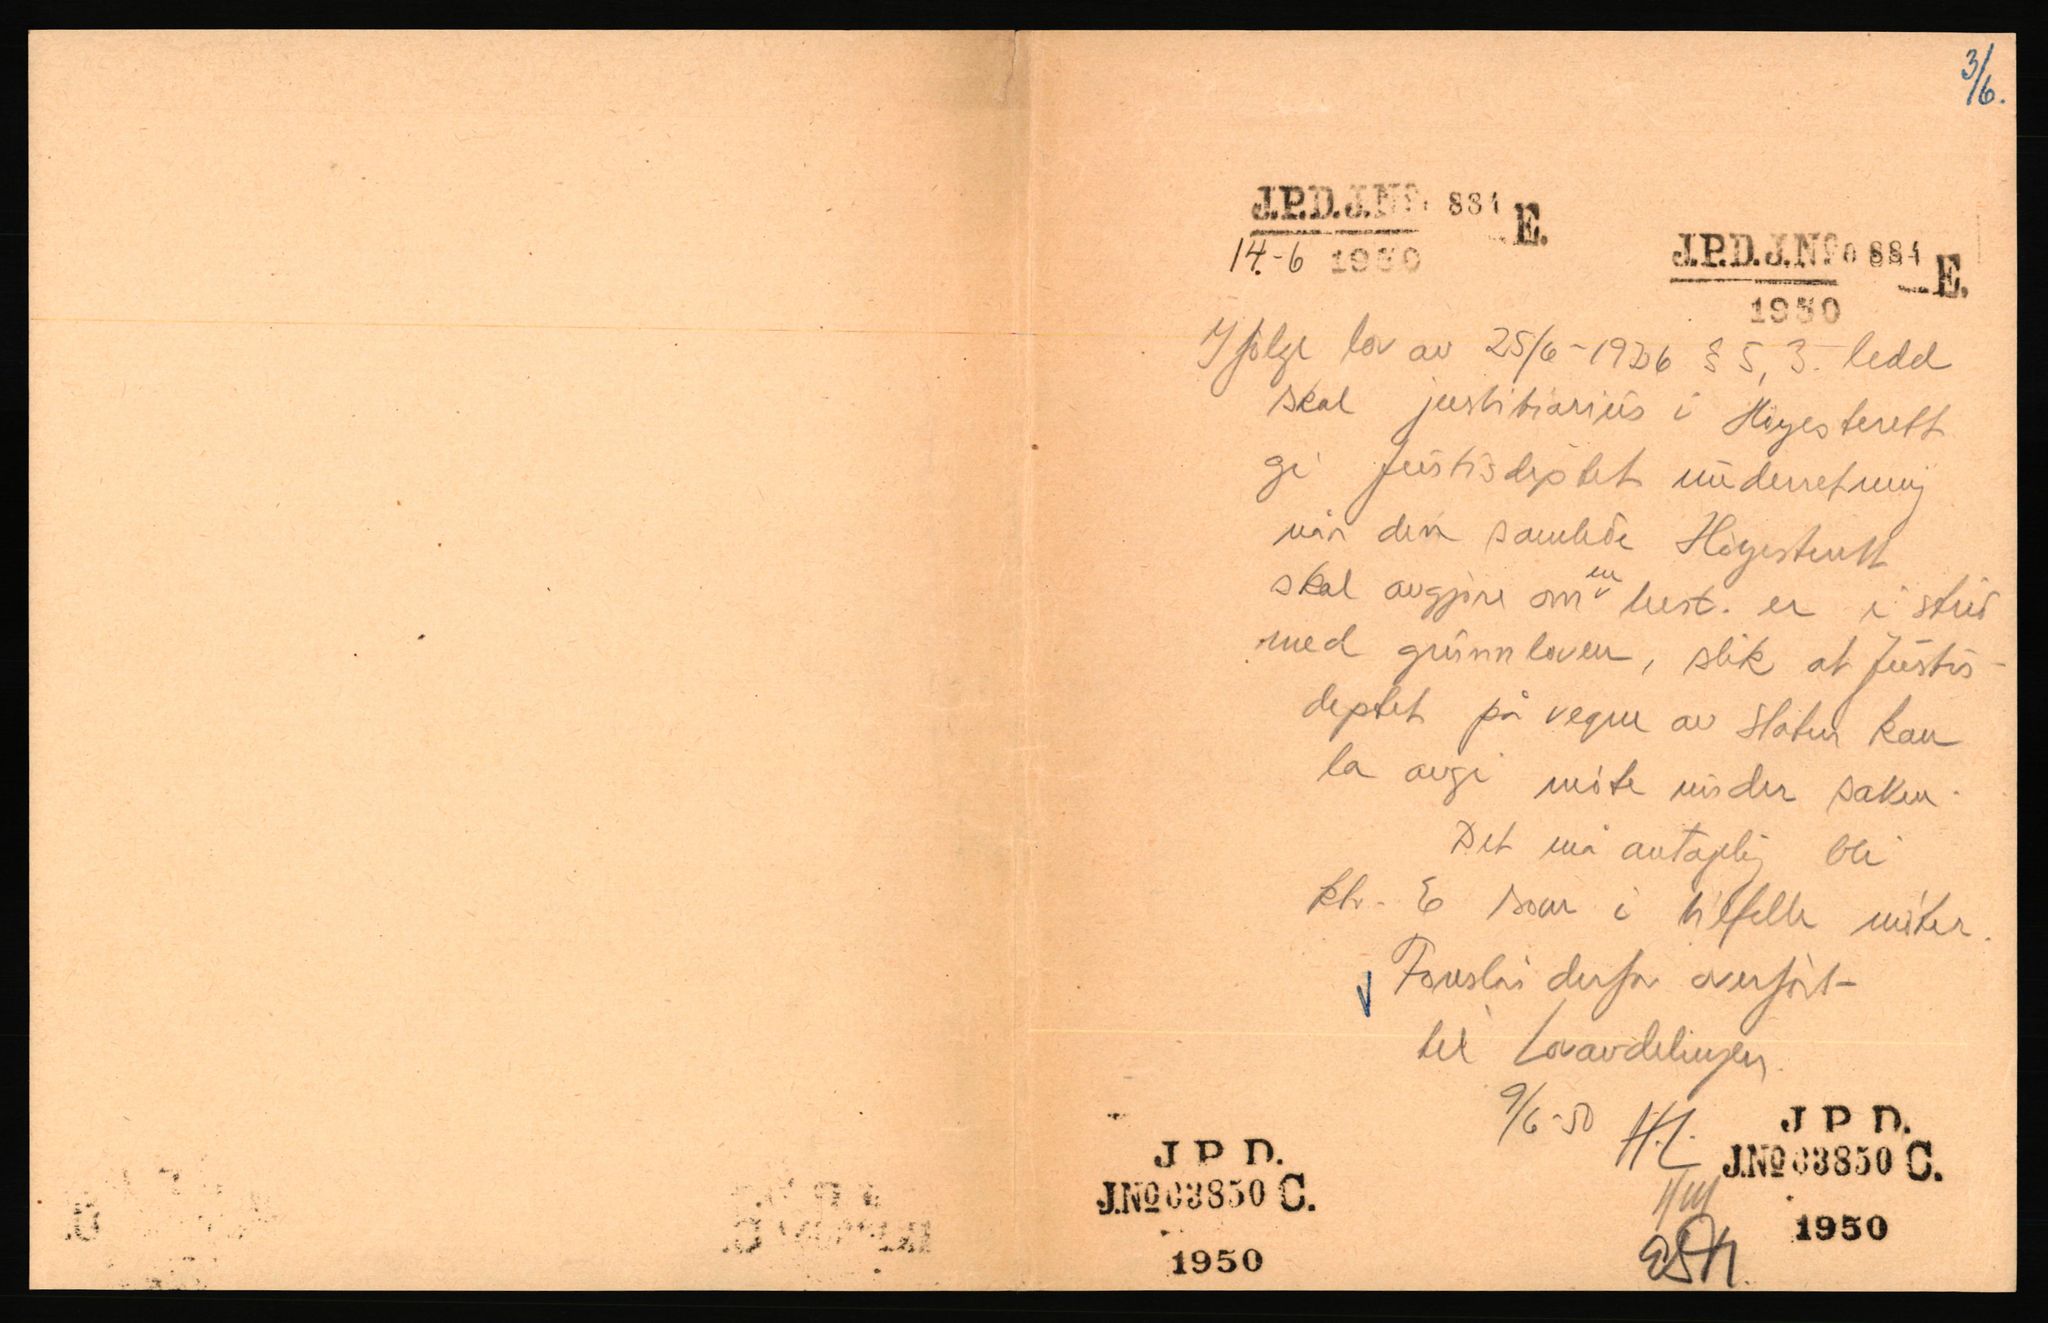 3/6.
J.P.D.J.Nº 884 E.
14.-6 1950
J.P.D.J.Nº 0884 E.
1950
Ifølge lov av 25/6-1926 § 5, 3. ledd
skal justitiarius i Høyesterett
gi Justisdeptet underretning
når den samlede Høyesterett
skal avgjøre om en best. er i strid
med grunnloven, slik at Justis-
deptet på vegne av staten kan
la avgi møte under saken.
Det må antagelig bli
ktr. E som i tilfelle møter.
Foreslås derfor overført
til Lovavdelingen.
9/6-50 H.L.
J P D.
J.Nº 03850 C.
1950
J P D.
J.Nº 03850 C.
1950